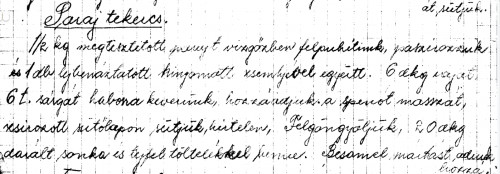 át, sütjük.
Paraj tekercs.
1/2 kg megtisztított parajt vízgőzben felpuhítunk, passzírozzuk
és 1 db tejbenáztatott kinyomott zsemlyével együtt. 6 dkg vajat
6 t. sárgát habosra keverünk, hozzáadjuk a spenót masszát,
zsírozott sütőlapon sütjük, hirtelen, Felgöngyöljük, 20 dkg
darált sonka és tejfel töltelékkel benne. Besamel mártást adunk
hozzá.